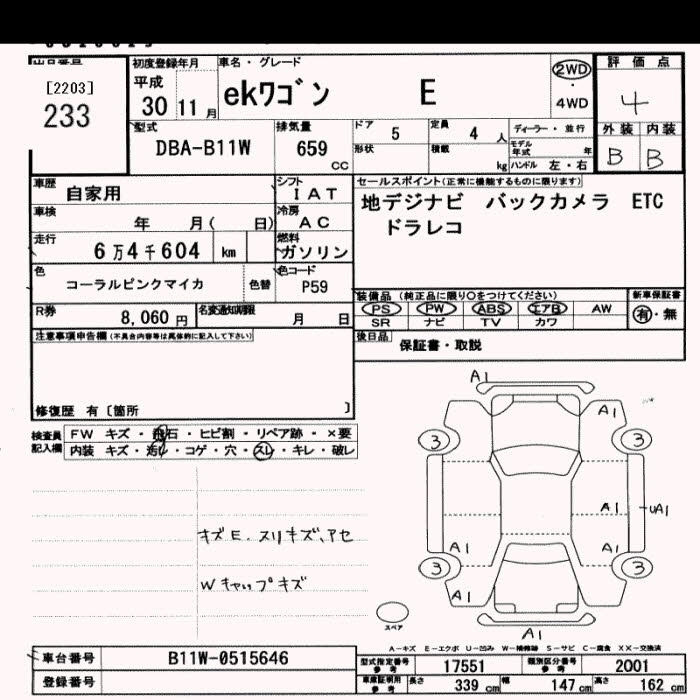 [2203]
233
初度登録年月
平成
30 11 月
車名・グレード
ekワゴン E
2WD
・
4WD
評価点
4
外装 内装
B B
型式
DBA-B11W
排気量
659
CC
ドア 5
定員 4 人
ディーラー・並行
形状
積載 kg
モデル年式 年
ハンドル 左・右
車歴 自家用
シフト
I A T
車検 年 月( 日)
冷房
A C
走行 6万4千604 km
燃料
ガソリン
色
コーラルピンクマイカ
色替
色コード
P59
R券 8,060 円
名変通知期限 月 日
セールスポイント(正常に機能するものに限ります)
地デジナビ バックカメラ ETC
ドラレコ
装備品 (純正品に限り○をつけてください)
PS PW ABS エアB AW
SR ナビ TV カワ
新車保証書
有・無
後日品
保証書・取説
注意事項申告欄(不具合内容等は具体的に記入して下さい)
修復歴 有〔箇所 〕
検査員
記入欄
FW キズ・飛石・ヒビ割・リペア跡・×要
内装 キズ・汚レ・コゲ・穴・スレ・キレ・破レ
キズE.スリキズ、アセ
Wキャップキズ
A1
A1
3 3
A1 UA1
A1 A1
3 3
A1
A1
スペア
A-キズ E-エクボ U-凹み W-補修跡 S-サビ C-腐食 XX-交換済
車台番号 B11W-0515646
登録番号
型式指定番号
参考
17551
類別区分番号
参考
2001
車庫証明用
参考
長さ 339 cm 幅 147 cm 高さ 162 cm